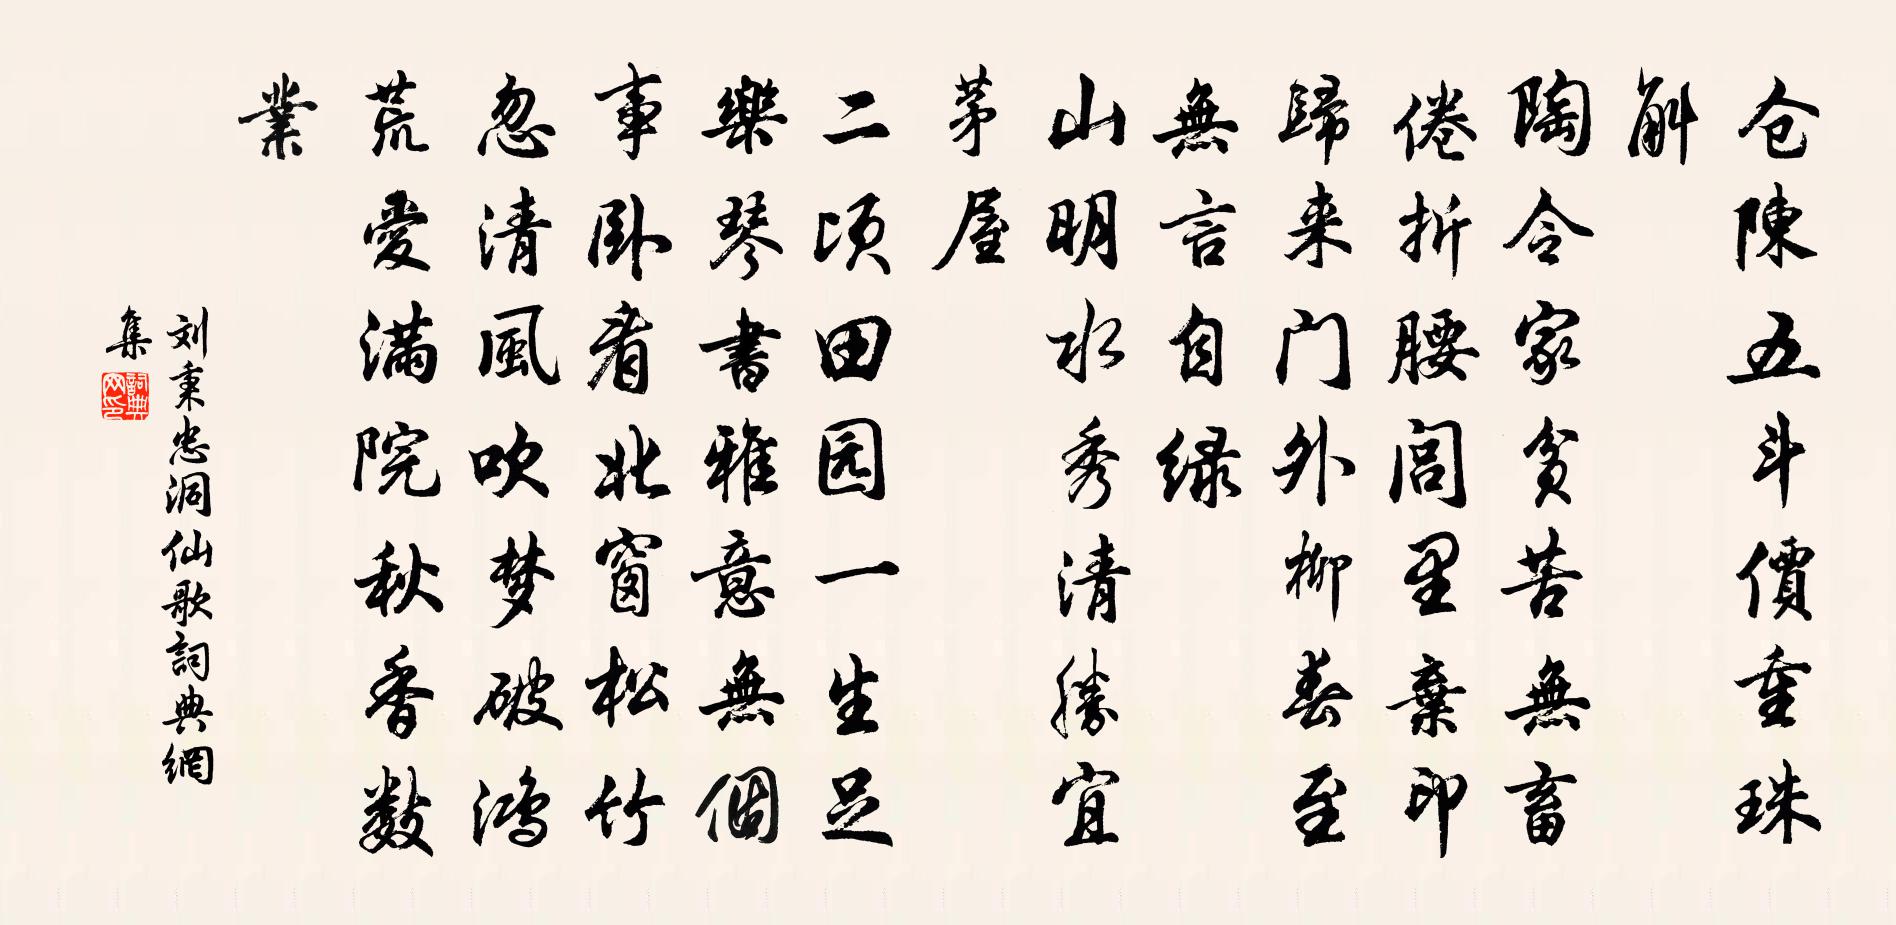 仓陳五斗價重珠
斛
陶令家貧苦無畜
倦折腰閭里棄印
歸来门外柳春至
無言自绿
山明水秀清勝宜
茅屋
二顷田园一生足
樂琴書雅意無個
事卧看北窗松竹
忽清風吹梦破鴻
荒愛满院秋香数
業
刘秉忠洞仙歌詞典網
集
詞典网印